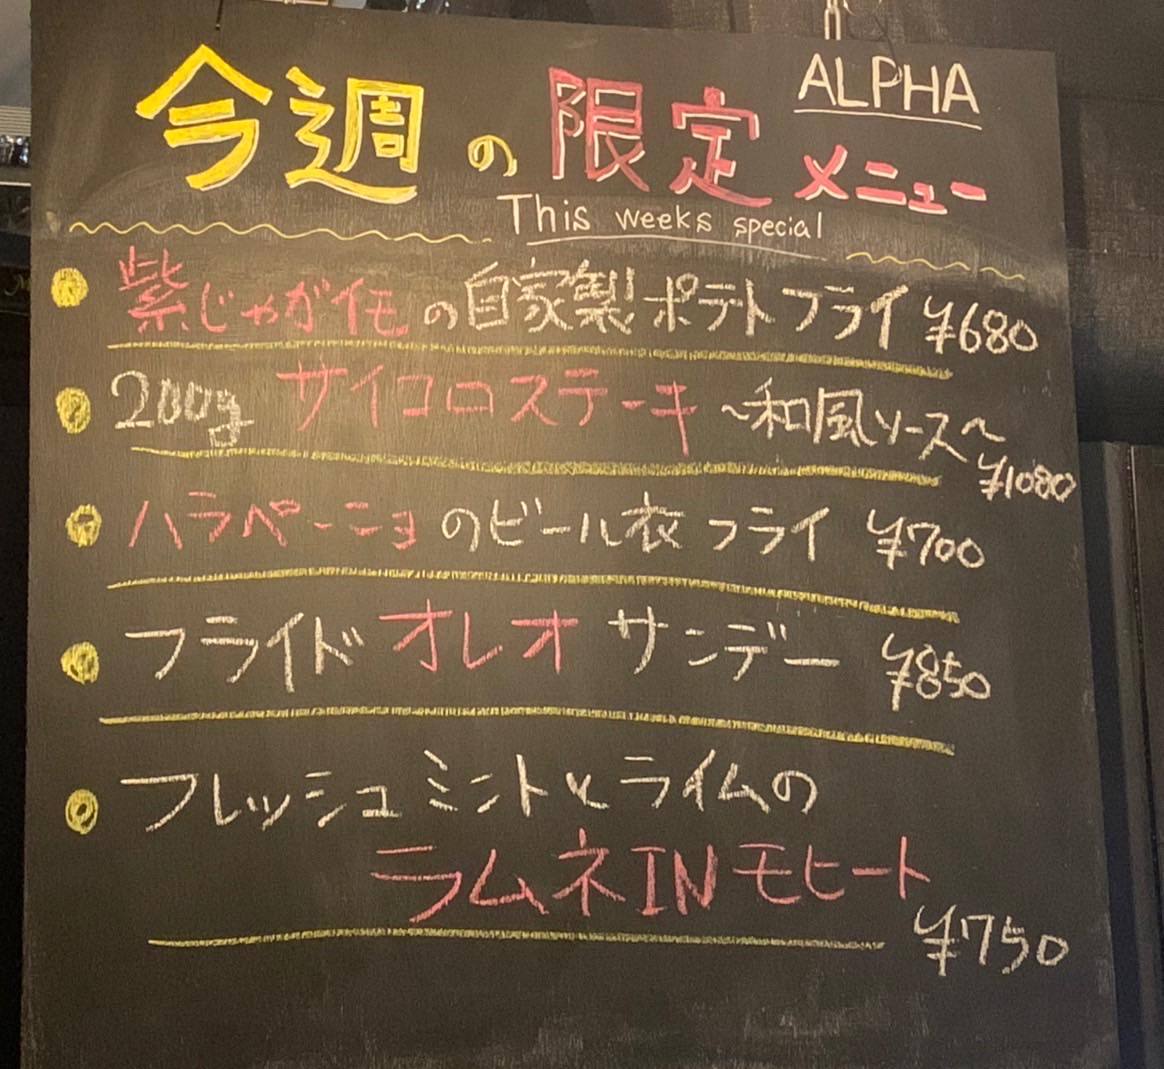 ALPHA
今週の限定メニュー
This weeks special
紫じゃがイモの自家製ポテトフライ ¥680
200g サイコロステーキ ~和風ソース~
¥1080
ハラペーニョのビール衣フライ ¥700
フライドオレオサンデー ¥850
フレッシュミントとライムの
ラムネINモヒート
¥750